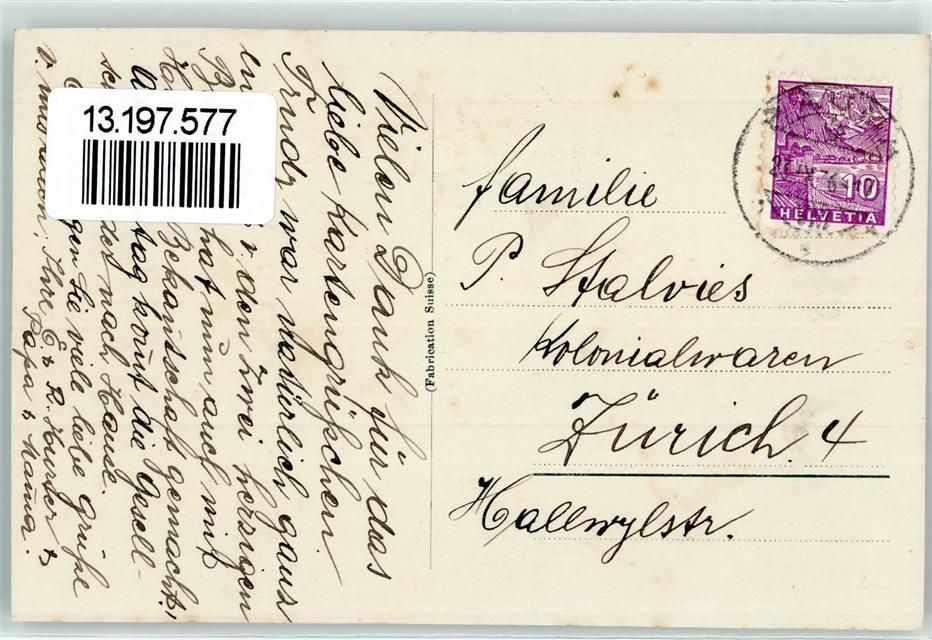 13.197.577
Vielen Dank für das
liebe Kartengrüßchen.
Trudy war natürlich ganz
in den zwei herzigen
hat nun auch mit
Bekanntschaft gemacht,
tag kom̅t die Gesell-
nach Hause.
Sie viele liebe Grüße
v. uns allen, Ihre E. & R. Hunter &
Papa & Mam̅a.
(Fabrication Suisse)
10
HELVETIA
Familie
P. Stalvies
Kolonialwaren
Zürich 4
Hallwylstr.